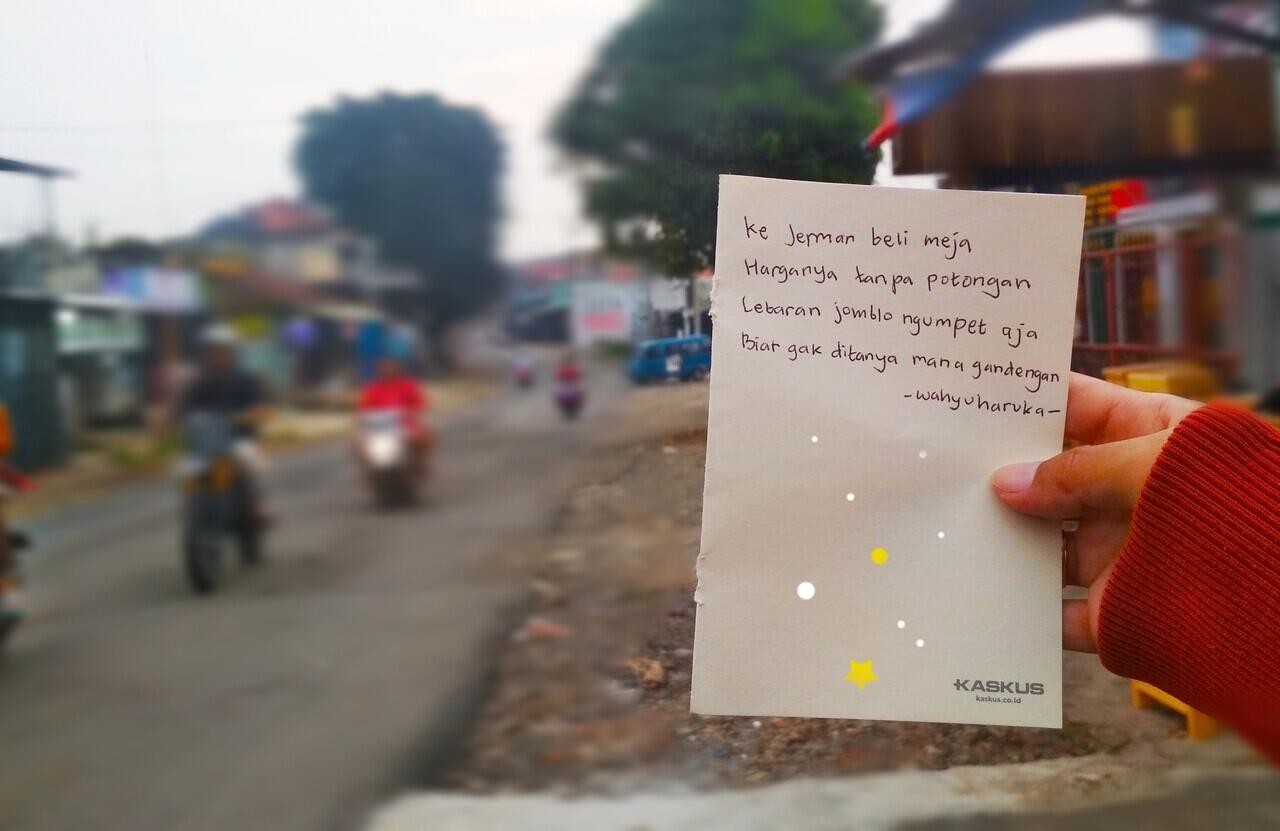 ke Jerman beli meja
Harganya tanpa potongan
Lebaran jomblo ngumpet aja
Biar gak ditanya mana gandengan
-wahyuharuka-
KASKUS
kaskus.co.id